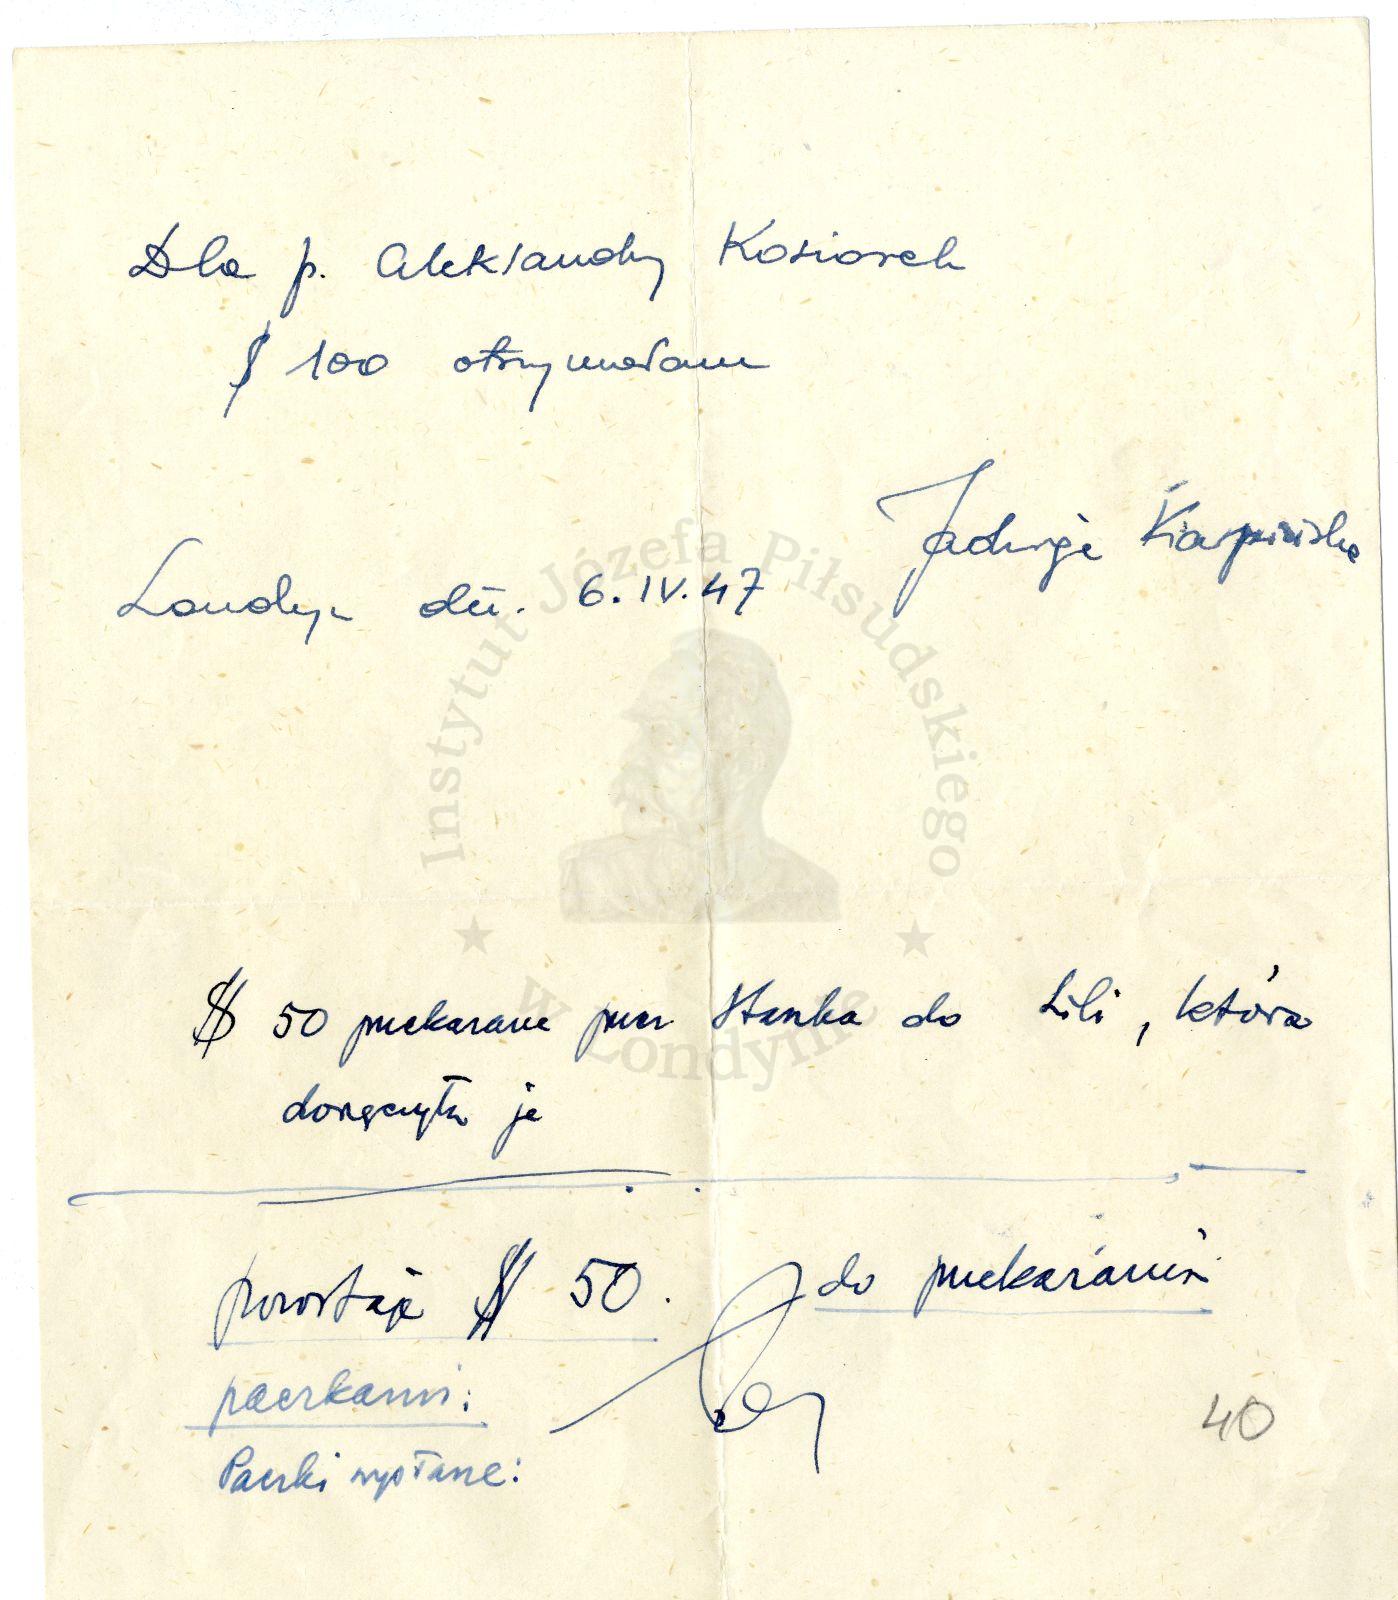 Dla p. Aleksandry Kosiorek
$ 100 otrzymałam
Jadwiga Karpińska
Londyn dn. 6.IV.47
Instytut Józefa Piłsudskiego
w Londynie
$ 50 przekazane przez Stanka do Lili, która
doręczyła je
pozostaje $ 50. do przekazania
paczkami:
Paczki wysłane:
40